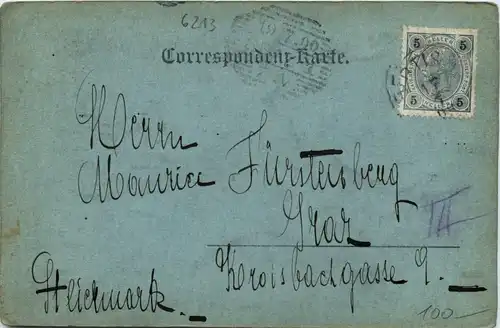 6213
Correspondenz-Karte.
5 5
5 5
Herrn
Maurice Fürstenberg
Graz
Kroisbachgasse
Steiermark.
100—